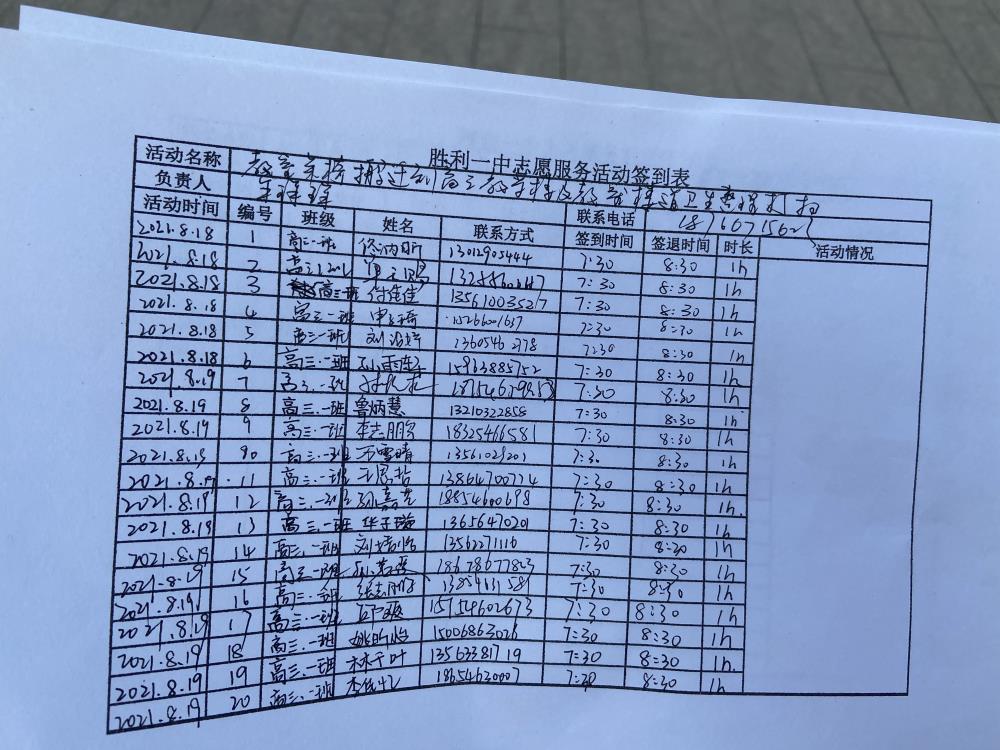 胜利一中志愿服务活动签到表
活动名称 教室桌椅搬迁到高三教学楼及教学楼道卫生整理打扫
负责人 联系电话 1876071562
活动时间 编号 班级 姓名 联系方式 签到时间 签退时间 时长 活动情况
2021.8.18 1 高三一班 13012905444 7:30 8:30 1h
2021.8.18 2 7:30 8:30 1h
2021.8.18 3 高三一班 付佳佳 13561003527 7:30 8:30 1h
2021.8.18 4 高三一班 15266001637 7:30 8:30 1h
2021.8.18 5 高三一班 7:30 8:30 1h
2021.8.18 6 高三.一班 15963885752 7:30 8:30 1h
2021.8.19 7 高三.一班 7:30 8:30 1h
2021.8.19 8 高三.一班 鲁炳慧 13210322858 7:30 8:30 1h
2021.8.19 9 高三.一班 李志鹏 18325466581 7:30 8:30 1h
2021.8.19 10 高三.一班 万雪晴 13561029201 7:30 8:30 1h
2021.8.19 11 高三.一班 13864700774 7:30 8:30 1h
2021.8.19 12 高三.一班 18854600698 7:30 8:30 1h.
2021.8.19 13 高三.一班 华子璇 13656470201 7:30 8:30 1h
2021.8.19 14 高三.一班 13562271116 7:30 8:20 1h
2021.8.19 15 高三一班 18678677803 7:30 8:30 1h
2021.8.19 16 高三.一班 7:30 8:30 1h
2021.8.19 17 高三.一班 15754602673 7:30 8:30 1h
2021.8.19 18 高三.一班 姚昕怡 15006863026 7:30 8:30 1h
2021.8.19 19 高三.一班 林千叶 13563381719 7:30 8:30 1h.
2021.8.19 20 高三.一班 18654630007 7:30 8:30 1h
2021.8.19